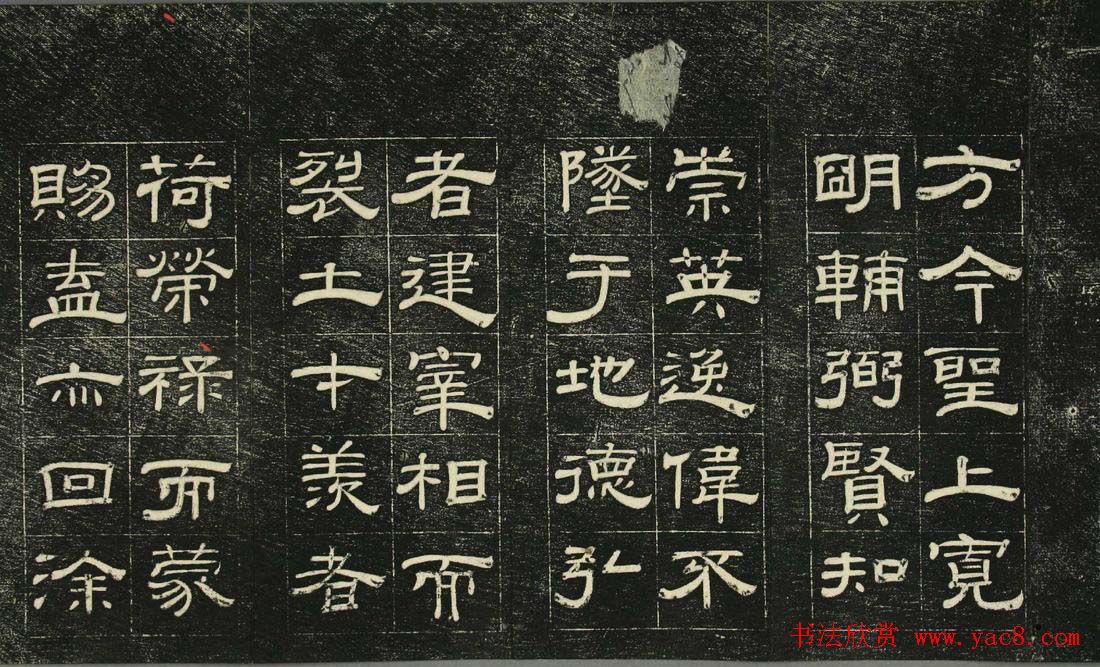 方今聖上寬
朙輔弼賢知
崇英逸偉不
墜于地德弘
者建宰相而
裂土才羨者
荷榮祿而蒙
賜盖亦回涂
书法欣赏 www.yac8.com